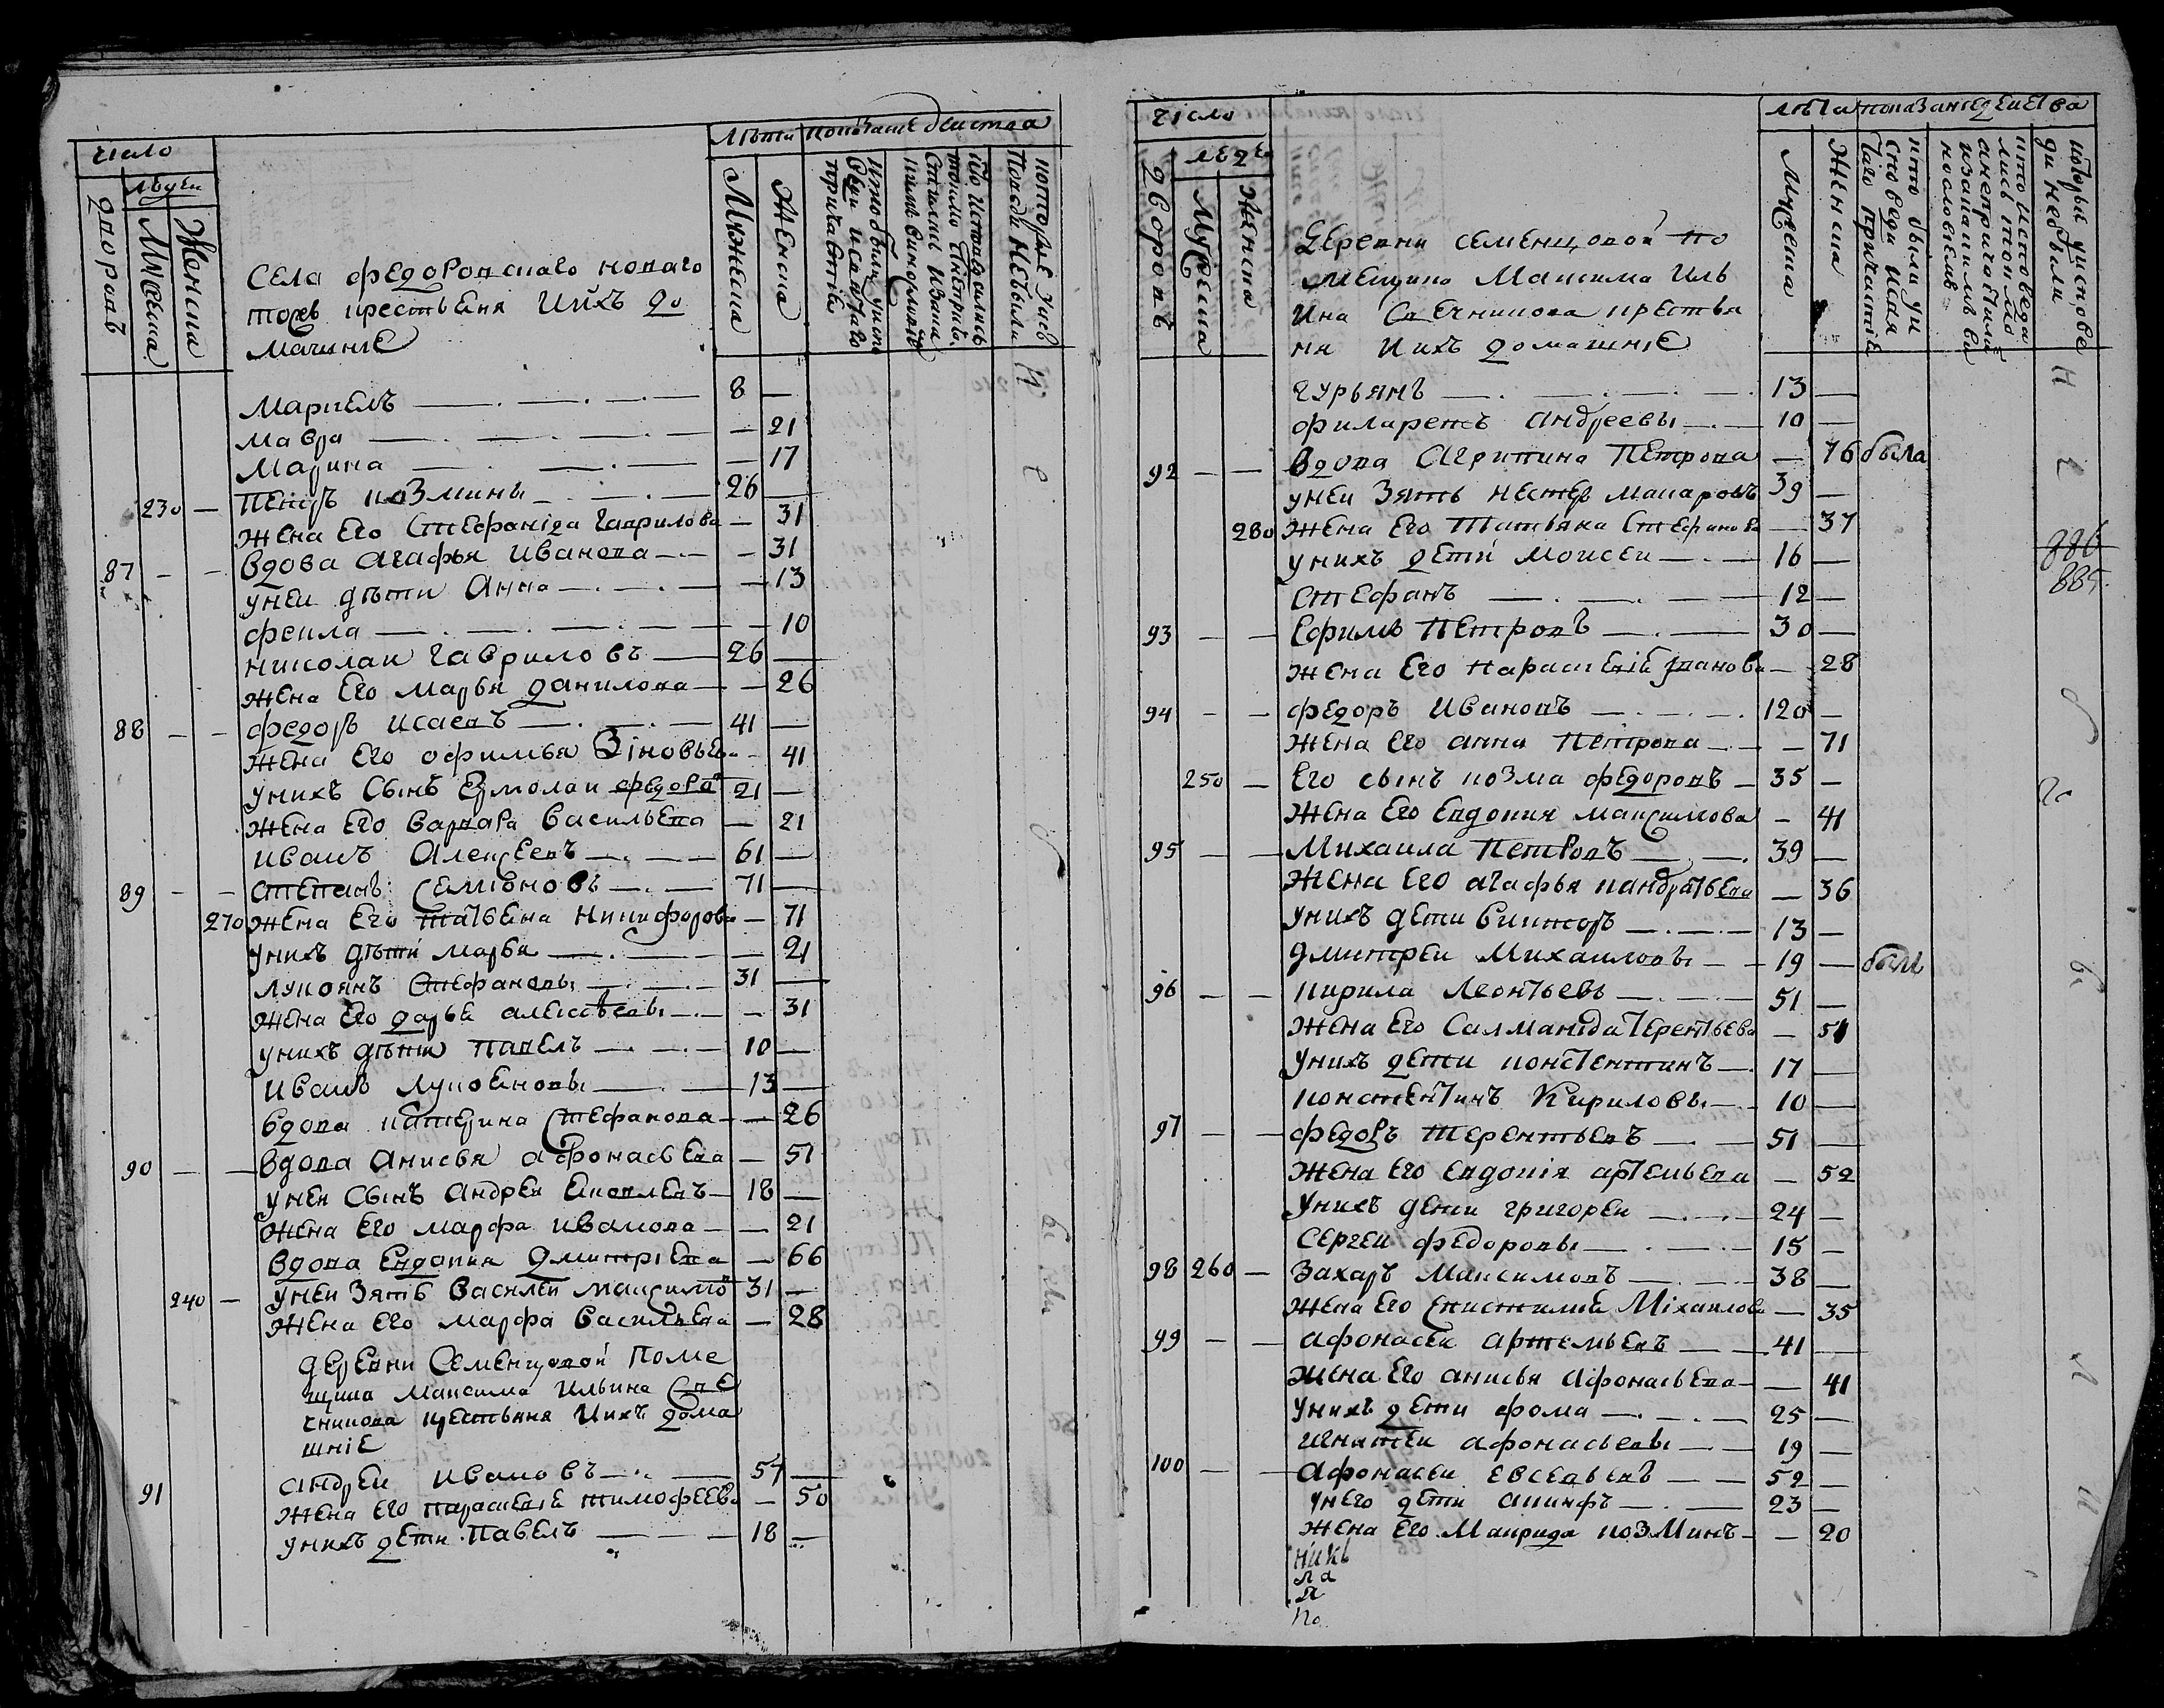 число
людеи
дворовъ
Мужеска
Женска
села федоровскаго новаго
тожъ крестьяня ихъ до
машние
Лѣта показание действа
Мужеска
Женска
маркелъ 8 —
мавра — 21
марина — 17
230 — петръ козмины 26 —
жена его Стефанида гаврилова — 31
87 — — вдова агафья иванова — 31
унеи дѣти Анна — 13
фекла — 10
николаи гавриловъ 26 —
жена его марья данилова — 26
88 — — федоръ исаевъ 41 —
жена его офимья Зиновьева — 41
унихъ сынъ Ермолаи федоро 21 —
жена его варвара васильева — 21
иванъ Алексеевъ 61 —
89 — — степанъ семионовъ 71 —
270 жена его татьяна никифорова — 71
унихъ дѣти марья — 21
лукоянъ стефановы 31 —
жена его дарья алексѣевы — 31
унихъ дѣти павелъ 10 —
иванъ лукояновы 13 —
вдова катерина стефанова — 26
90 — — вдова анисья афонасьева — 51
унеи сынъ андреи Яковлевъ 18 —
жена его марфа иванова — 21
вдова Евдокия дмитриева — 66
240 — унеи зять василеи максимо 31 —
жена его марфа васильева — 28
деревни семенцовой поме
щика максима ильина све
чникова крестьяня ихъ дома
шние
91 андреи ивановъ 57 —
жена его параскевия тимофеева — 50
унихъ дети павелъ 18 —
число
людеи
дворовъ
Мужеска
Женска
деревни семенцовой по
мещика Максима Иль
ина свечникова крестья
ня ихъ домашние
лѣта показание действа
Мужеска
Женска
кто были уи
споведи исвя
таго причастия
которыи уисповѣ
ди небыли
гурьянъ 13 —
филаретъ андреевы 10 —
92 — — вдова агрипина петрова — 76 была
унеи зять нестеръ макаровъ 39 —
280 жена его татьяна стефанова — 37
унихъ дети моисеи 16 —
стефанъ 12 —
886
885
93 — — ефимъ петровъ 30 —
жена его параскевия иванова — 28
94 — — федоръ ивановъ 120 —
жена его анна петрова — 71
250 — его сынъ козма федоровъ 35 —
жена его евдокия максимова — 41
95 — — михаила петровъ 39 —
жена его агафья кандратьева — 36
унихъ дети викторъ 13 —
дмитреи михаиловы 19 — былъ
96 — — кирила леонтьевъ 51 —
жена его саламанида терентьева — 51
унихъ дети константинъ 17 —
константинъ кириловы 10 —
97 — — федоръ терентьевъ 51 —
жена его евдокия артемьева — 52
унихъ дети григореи 24 —
сергеи федоровы 15 —
98 260 — захаръ максимовъ 38 —
жена его епистимия михаилова — 35
99 — — афонасеи артемьевъ 41 —
жена его анисья афонасьева — 41
унихъ дети фома 25 —
игнатеи афонасьевы 19 —
100 — — афонасеи евсевьевъ 52 —
унего дети акинфъ 23 —
жена его маврида козминъ — 20